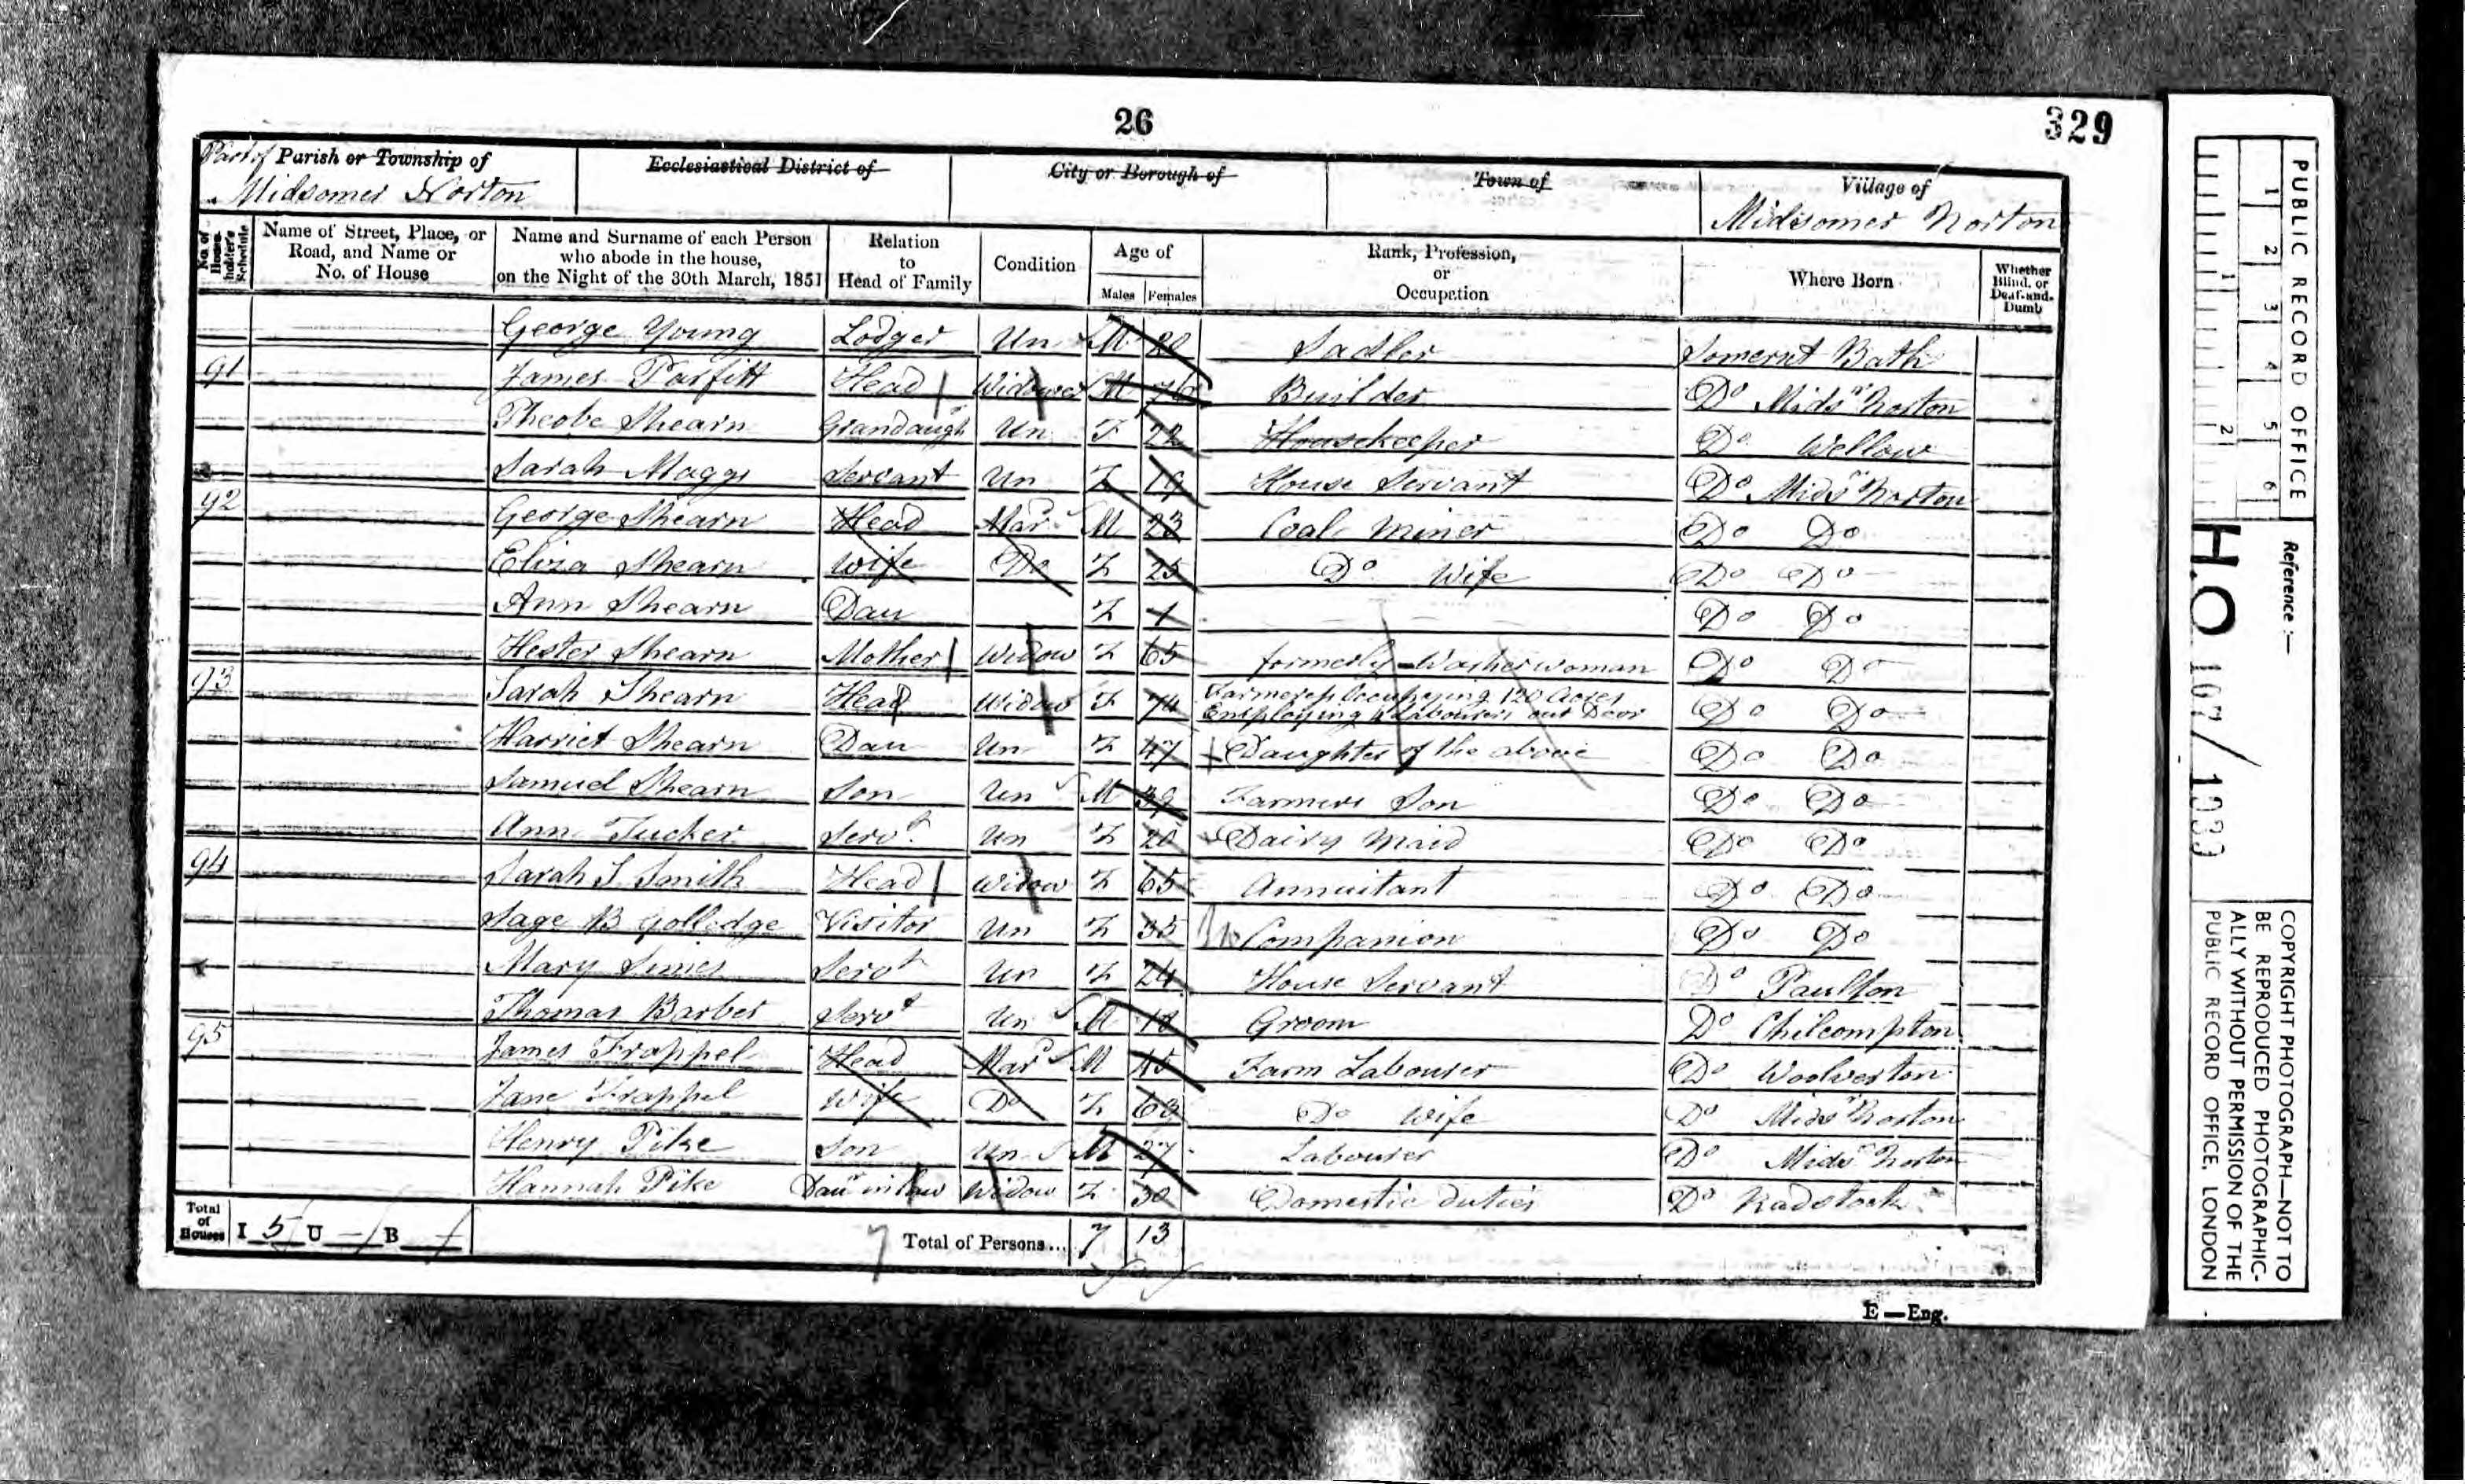 26
329
Part of Parish or Township of
Midsomer Norton
Ecclesiastical District of
City or Borough of
Town of
Village of
Midsomer Norton
No. of House-holder's Schedule
Name of Street, Place, or Road, and Name or No. of House
Name and Surname of each Person who abode in the house, on the Night of the 30th March, 1851
Relation to Head of Family
Condition
Age of
Males Females
Rank, Profession, or Occupation
Where Born
Whether Blind, or Deaf-and-Dumb
George Young Lodger Un M Sadler Somerset Bath
91 James Parfitt Head Widower M Builder Do Mids Norton
Pheobe Shearn Grandaugh Un F 22 Housekeeper Do Wellow
Sarah Maggs Servant Un F 19 House Servant Do Mids Norton
92 George Shearn Head Mar M 23 Coal Miner Do Do
Eliza Shearn Wife Do F 25 Do Wife Do Do
Ann Shearn Dau F 1 Do Do
Hester Shearn Mother Widow F 65 formerly Washerwoman Do Do
93 Sarah Shearn Head Widow F 74 Farmeress Occupying 120 Acres
Employing Labourers out Door Do Do
Harriet Shearn Dau Un F 47 Daughter of the above Do Do
Samuel Shearn Son Un M 39 Farmers Son Do Do
Ann Tucker Servt Un F 20 Dairy Maid Do Do
94 Sarah S Smith Head Widow F 65 Annuitant Do Do
Sage B Golledge Visitor Un F 35 Companion Do Do
Mary Simes Servt Un F 24 House Servant Do Paulton
Thomas Barber Servt Un M 18 Groom Do Chilcompton
95 James Frappel Head Mar M Farm Labourer Do Woolverton
Jane Frappel Wife Do F Do Wife Do Mids Norton
Henry Pike Son Un M 27 Labourer Do Mids Norton
Hannah Pike Dau in law Widow F 30 Domestic duties Do Radstock
Total of Houses I 5 U — B —
Total of Persons... 7 13
7
E—Eng.
PUBLIC RECORD OFFICE
1 2 3 4 5 6
1 2
Reference:—
H.O 107/1939
COPYRIGHT PHOTOGRAPH—NOT TO
BE REPRODUCED PHOTOGRAPHIC-
ALLY WITHOUT PERMISSION OF THE
PUBLIC RECORD OFFICE, LONDON